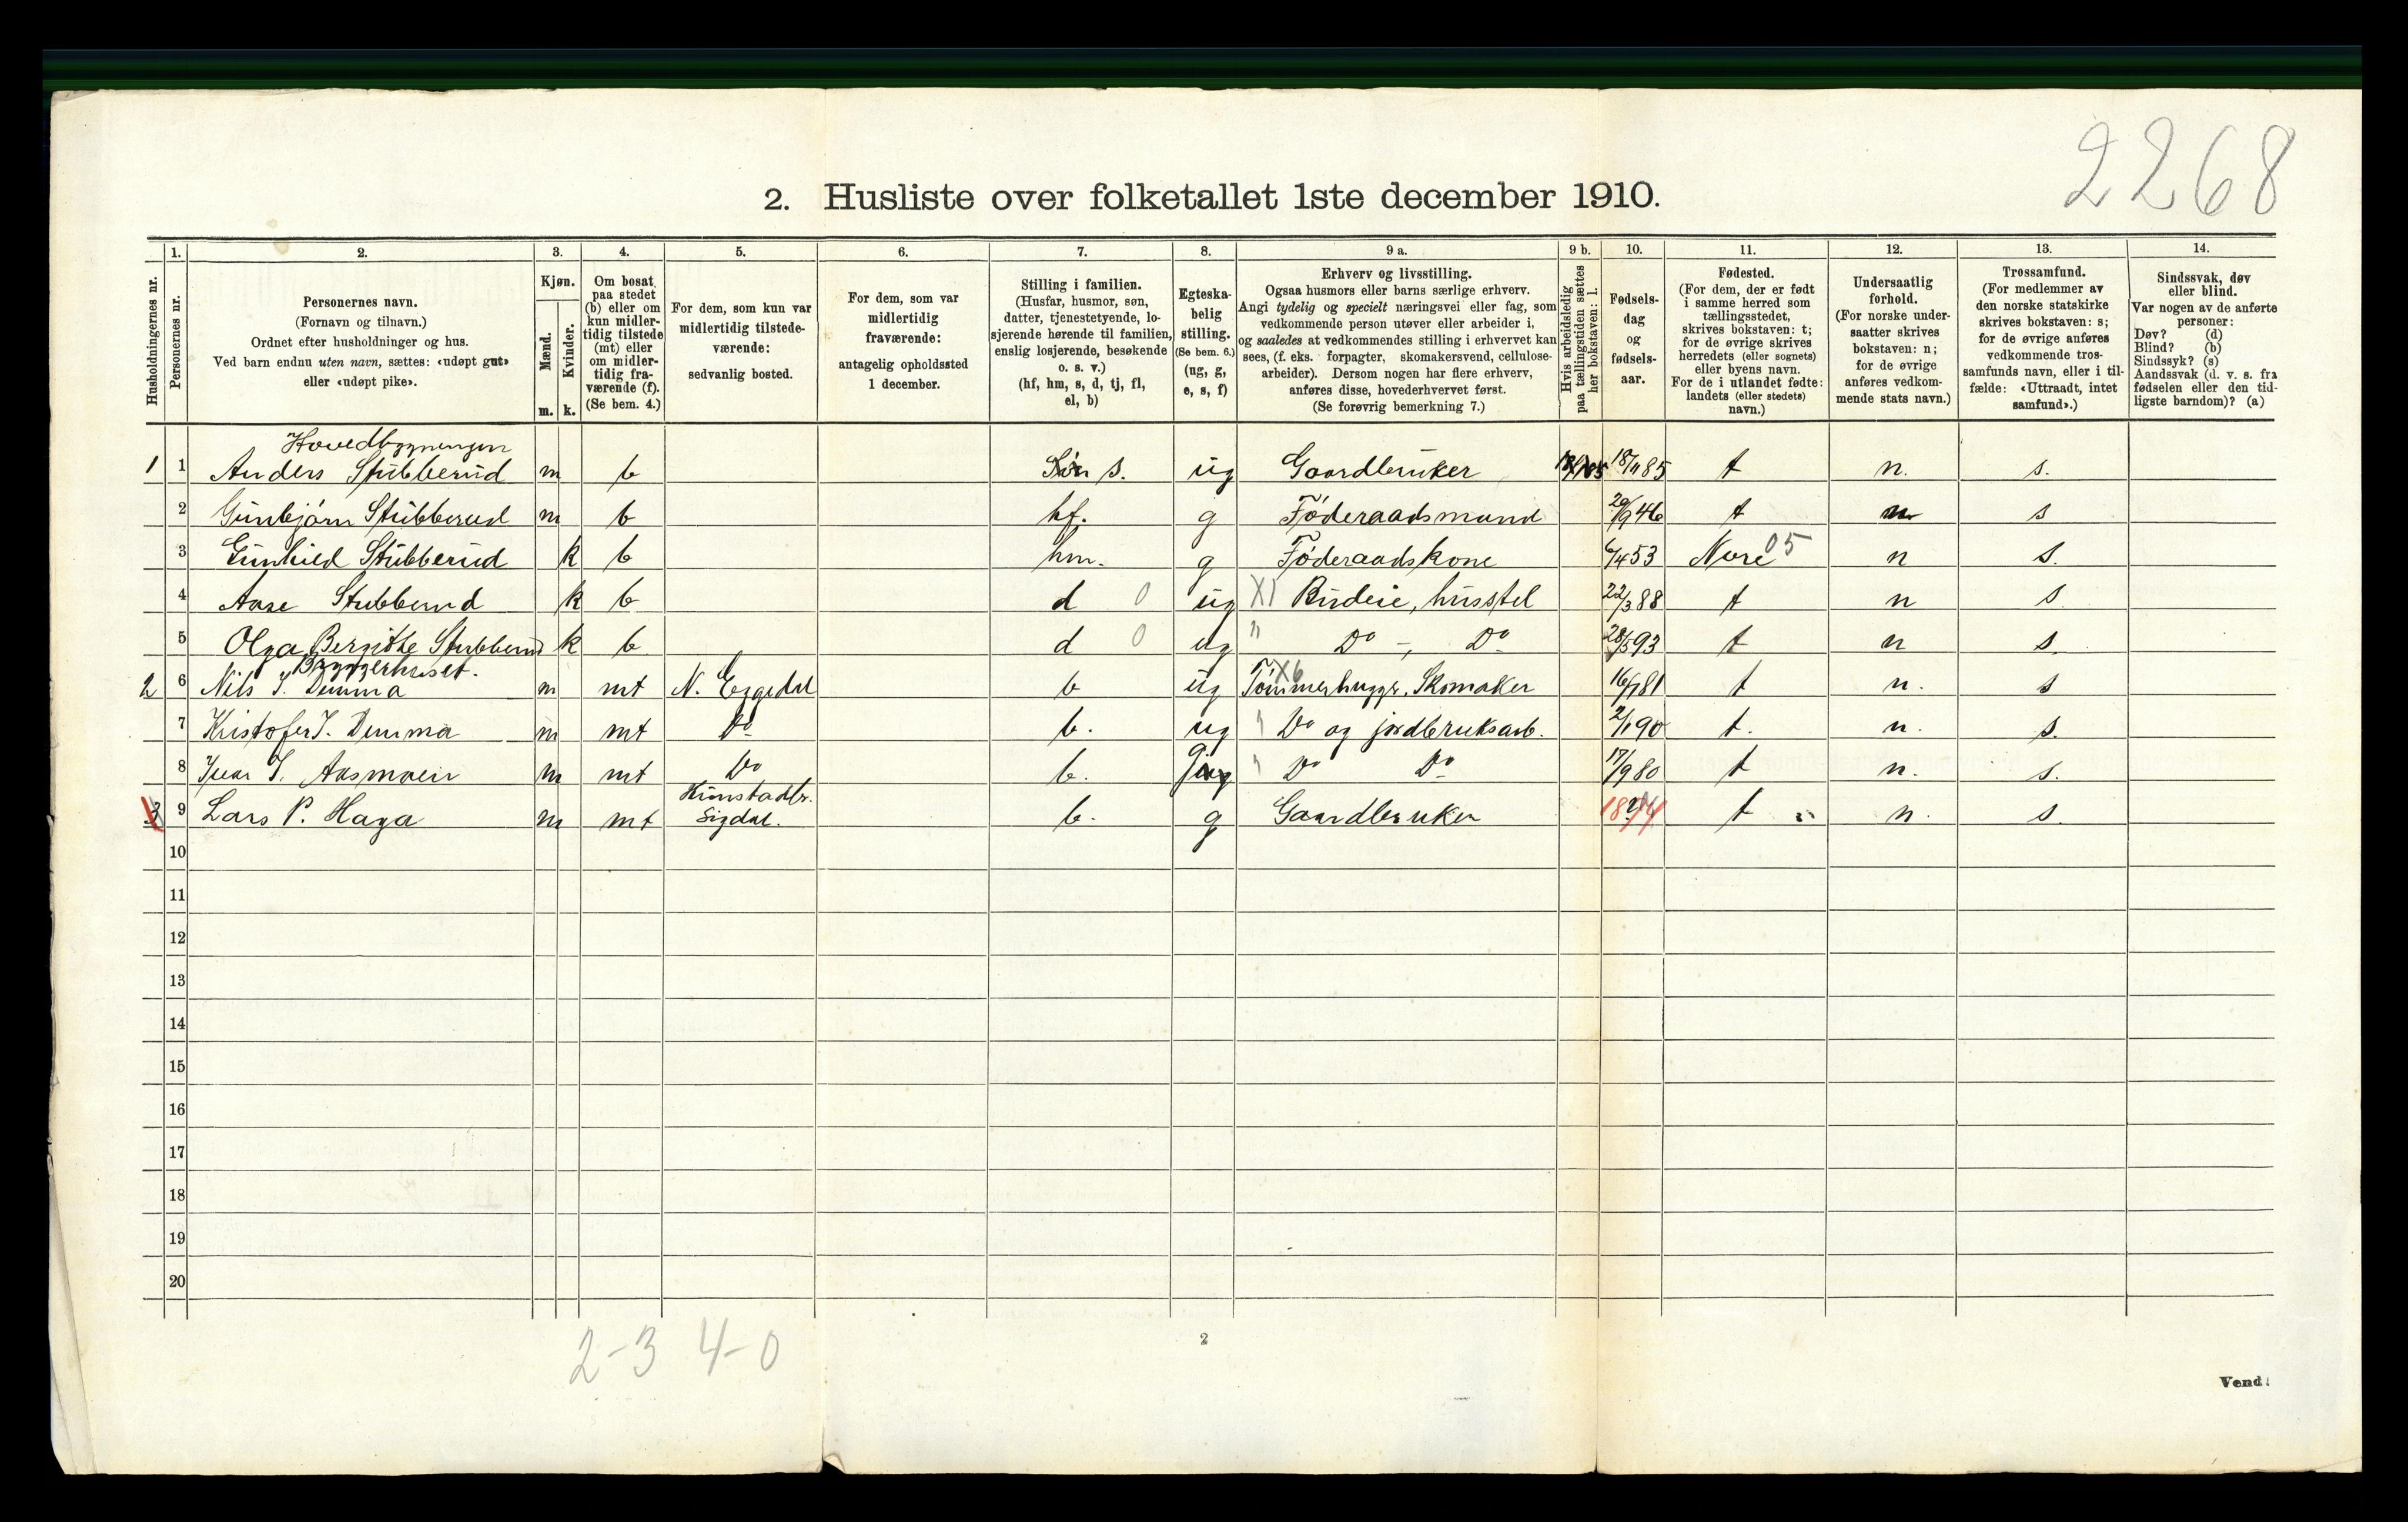 2268
2. Husliste over folketallet 1ste december 1910.
1. 2. 3. 4. 5. 6. 7. 8. 9 a. 9 b. 10. 11. 12. 13. 14.
Husholdningernes nr.
Personernes nr.
Personernes navn.
(Fornavn og tilnavn.)
Ordnet efter husholdninger og hus.
Ved barn endnu uten navn, sættes: «udøpt gut»
eller «udøpt pike».
Kjøn.
Mænd.
Kvinder.
m. k.
Om bosat
paa stedet
(b) eller om
kun midler-
tidig tilstede
(mt) eller
om midler-
tidig fra-
værende (f).
(Se bem. 4.)
For dem, som kun var
midlertidig tilstede-
værende:
sedvanlig bosted.
For dem, som var
midlertidig
fraværende:
antagelig opholdssted
1 december.
Stilling i familien.
(Husfar, husmor, søn,
datter, tjenestetyende, lo-
sjerende hørende til familien,
enslig losjerende, besøkende
o. s. v.)
(hf, hm, s, d, tj, fl,
el, b)
Egteska-
belig
stilling.
(Se bem. 6.)
(ug, g,
e, s, f)
Erhverv og livsstilling.
Ogsaa husmors eller barns særlige erhverv.
Angi tydelig og specielt næringsvei eller fag, som
vedkommende person utøver eller arbeider i,
og saaledes at vedkommendes stilling i erhvervet kan
sees, (f. eks. forpagter, skomakersvend, cellulose-
arbeider). Dersom nogen har flere erhverv,
anføres disse, hovederhvervet først.
(Se forøvrig bemerkning 7.)
Hvis arbeidsledig
paa tællingstiden sættes
her bokstaven: l.
Fødsels-
dag
og
fødsels-
aar.
Fødested.
(For dem, der er født
i samme herred som
tællingsstedet,
skrives bokstaven: t;
for de øvrige skrives
herredets (eller sognets)
eller byens navn.
For de i utlandet fødte:
landets (eller stedets)
navn.)
Undersaatlig
forhold.
(For norske under-
saatter skrives
bokstaven: n;
for de øvrige
anføres vedkom-
mende stats navn.)
Trossamfund.
(For medlemmer av
den norske statskirke
skrives bokstaven: s;
for de øvrige anføres
vedkommende tros-
samfunds navn, eller i til-
fælde: «Uttraadt, intet
samfund».)
Sindssvak, døv
eller blind.
Var nogen av de anførte
personer:
Døv? (d)
Blind? (b)
Sindssyk? (s)
Aandssvak (d. v. s. fra
fødselen eller den tid-
ligste barndom)? (a)
Hovedbygningen
1 1 Anders Stubberud m b Søn s. ug Gaardbruker 18/11 85 t n. s.
2 Gunbjørn Stubberud m b hf. g Føderaadsmand 20/9 46 t n s
3 Gunhild Stubberud k b hm. g Føderaadskone 6/4 53 Nore 05 n s.
4 Aase Stubberud k b d 0 ug X1 Budeie, husstel 22/3 88 t n s
5 Olga Bergithe Stubberud k b d 0 ug " Do -, Do 28/5 93 t n s.
Bryggerhuset.
2 6 Nils I. Demma m mt N. Eggedal b ug X6 Tømmerhugger, Skomaker 16/1 81 t n. s
7 Kristofer I. Demma m mt Do b. ug " Do og jordbruksarb. 2/1 90 t. n. s.
8 Ivar I. Aasmoen m mt Do b. g " Do Do 17/9 80 t n. s.
Sigdal.
3 9 Lars P. Haga m mt b. g Gaardbruker 1874 t n. s.
10
11
12
13
14
15
16
17
18
19
20
2-3 4-0
2
Vend!